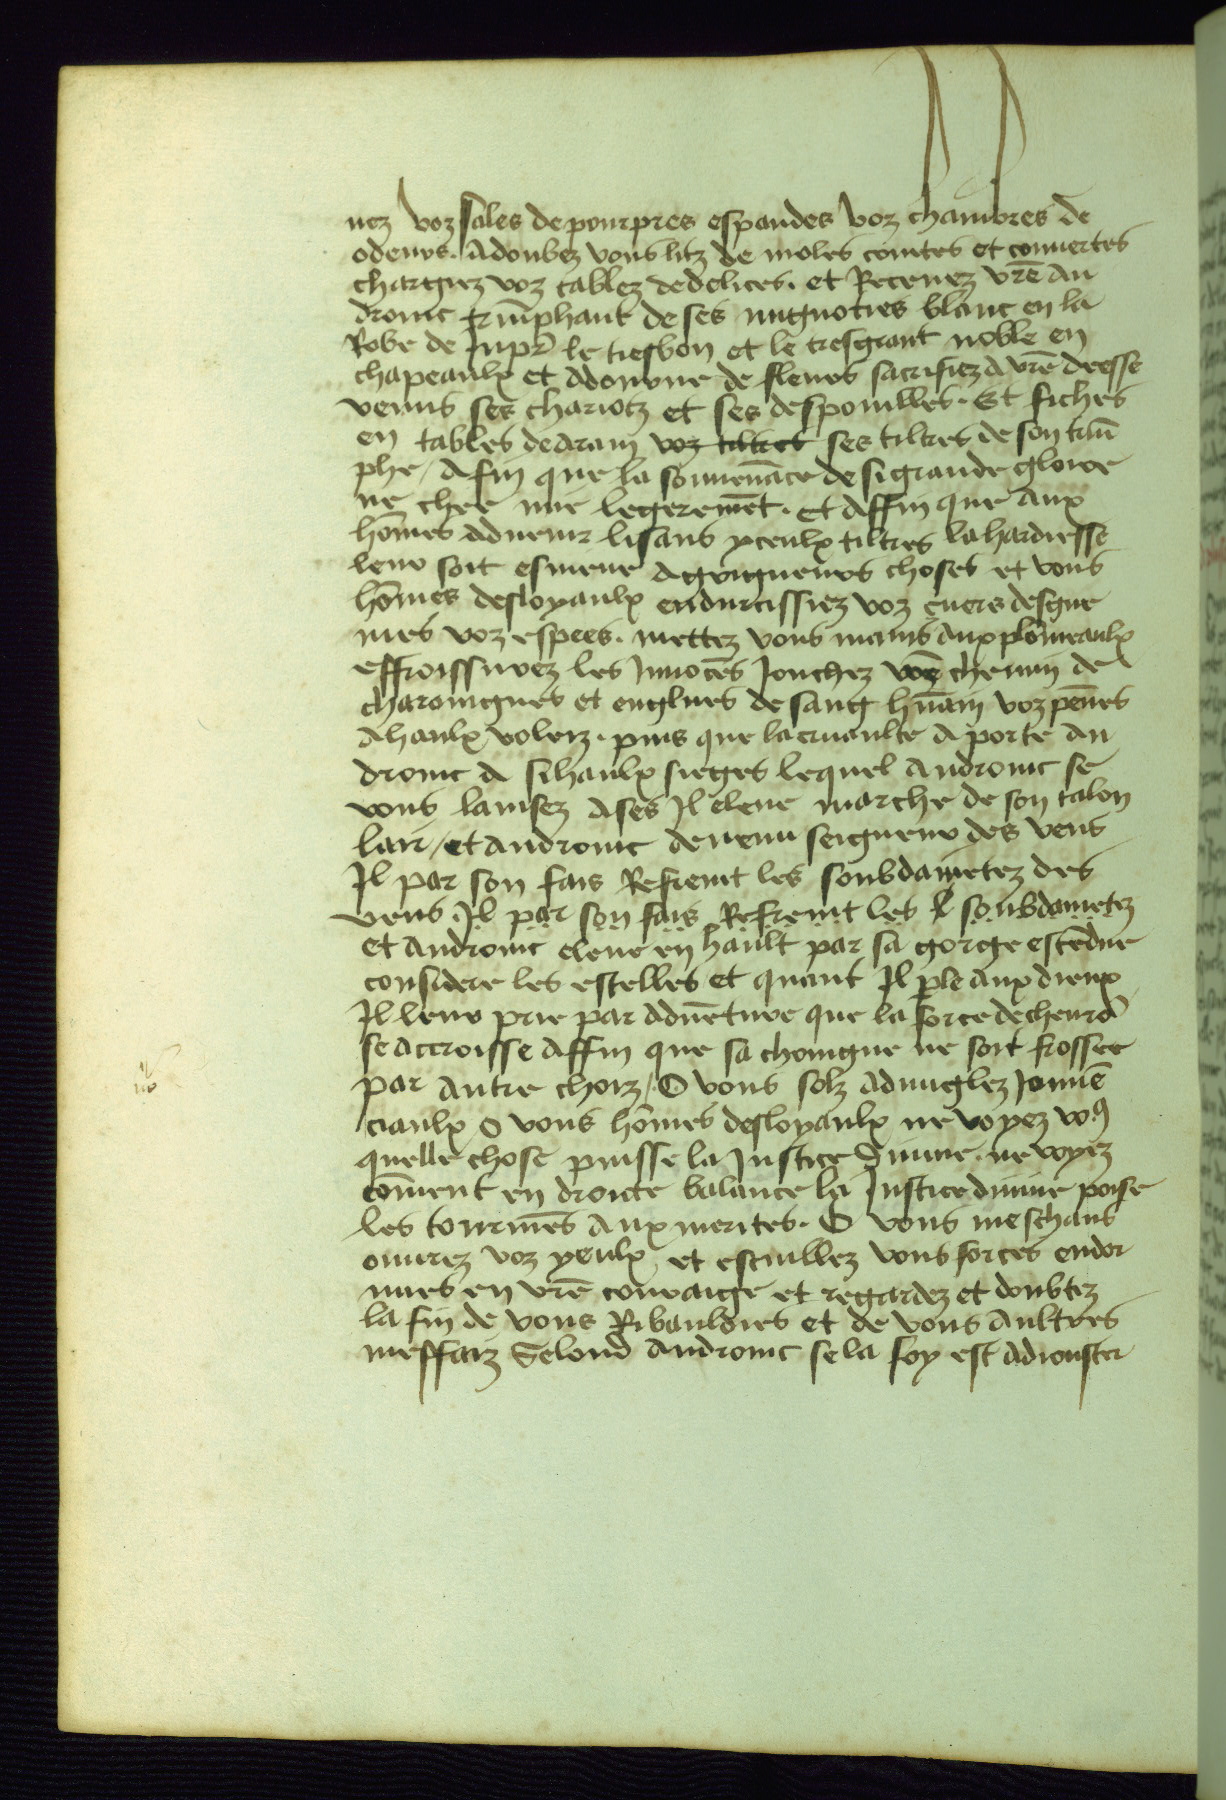 nez voz sales de pourpres espandes voz chambres de
odeurs. Adoubez vous litz de moles coultes et couuertes
chargiez voz tablez de delices. et Receuez vr̄e An
dronic triūphant de ses nugnocies blanc en la
Robe de Jup̄r le tresbon et le tresgrant noble en
chapeaulx et adourne de fleurs sacrifiez a vr̄e deesse
venus ses chariotz et ses despouilles. Et fiches
en tables dedrain voz tiltres ses tiltres de son triū
phe / Afin que la souuenāce de si grande gloire
ne chee mie legeremēt. et Affin que aux
hōmes aduenir lisans yceulx tiltres la hardiesse
leur soit esmeue a greigneurs choses et vous
hōmes desloyaulx endurcissiez voz cuers desgue
nies voz espees. mettez vous mains aux plōmeaulx
effroissiez les Jnnocēs Jonchez voz chemin de
charoingnes et englues de sang hūain voz pēnes
Ahaulx volerz. puis que la cruaulte a porte An
dronic a si haulx sieges lequel Andronic se
vous lauisez a ses Jl eleue marche de son talon
lair / et andronic deuenu seigneur des vens
Jl par son fais Refreint les soubdainetez des
vens. Jl par son fais Refreint les l soubdainetez
et andronic eleue en hault par sa gorge estēdue
considere les estelles et quant Jl p̄le aux dieux
Jl leur prie par aduēture que la force de cheurō
se accroisse Affin que sa choingne ne soit frossee
par autre choiz / O vous folz aduuglez Jouuē
ciaulx O vous hōmes desloyaulx ne voyez voꝰ
quelle chose puisse la Justice diuine. ne voyez
cōment en droite balance la Justice diuine poise
les tourmēs aux merites. O vous meschans
ouurez voz yeulx et esueillez vous forces endor
mies en vr̄e couraige et regardez et doubtez
la fin de vous Ribauldies et de vous aultres
meffaiz Selond Andronic se la foy est adiouster